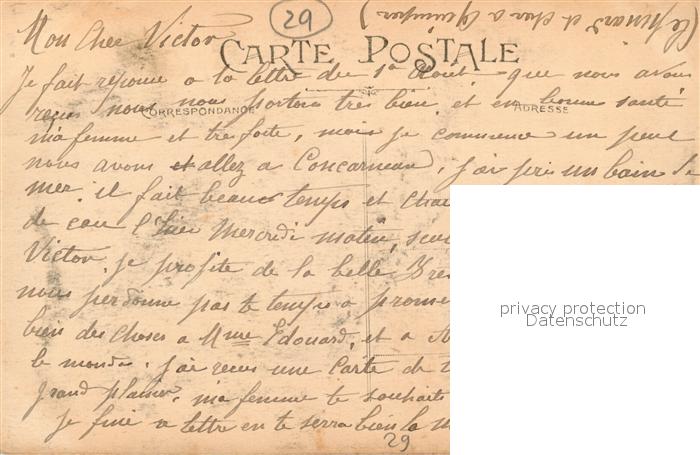 29
Mon Cher Victor
CARTE POSTALE
Je fait reponce a la lettre du 1a Aout que nous avons
CORRESPONDANCE
ADRESSE
reçus nous nous portons tres bien et en bonne santé
ma femme et tres forte, mais je commence un peut
nous avons et allez a Concarneau, j'ai pris un bain de
mer. il fait beaux temps et
de eau Mercredi matin,
Victor, je profite de la belle
nous perdonne pas te temps a
bien des choses a Mme Edouard, et a
le monde. J'ai recus une Carte de
grand plaisir, ma femme te souhaite
Je fini a lettre en te serra bien la
29
privacy protection
Datenschutz